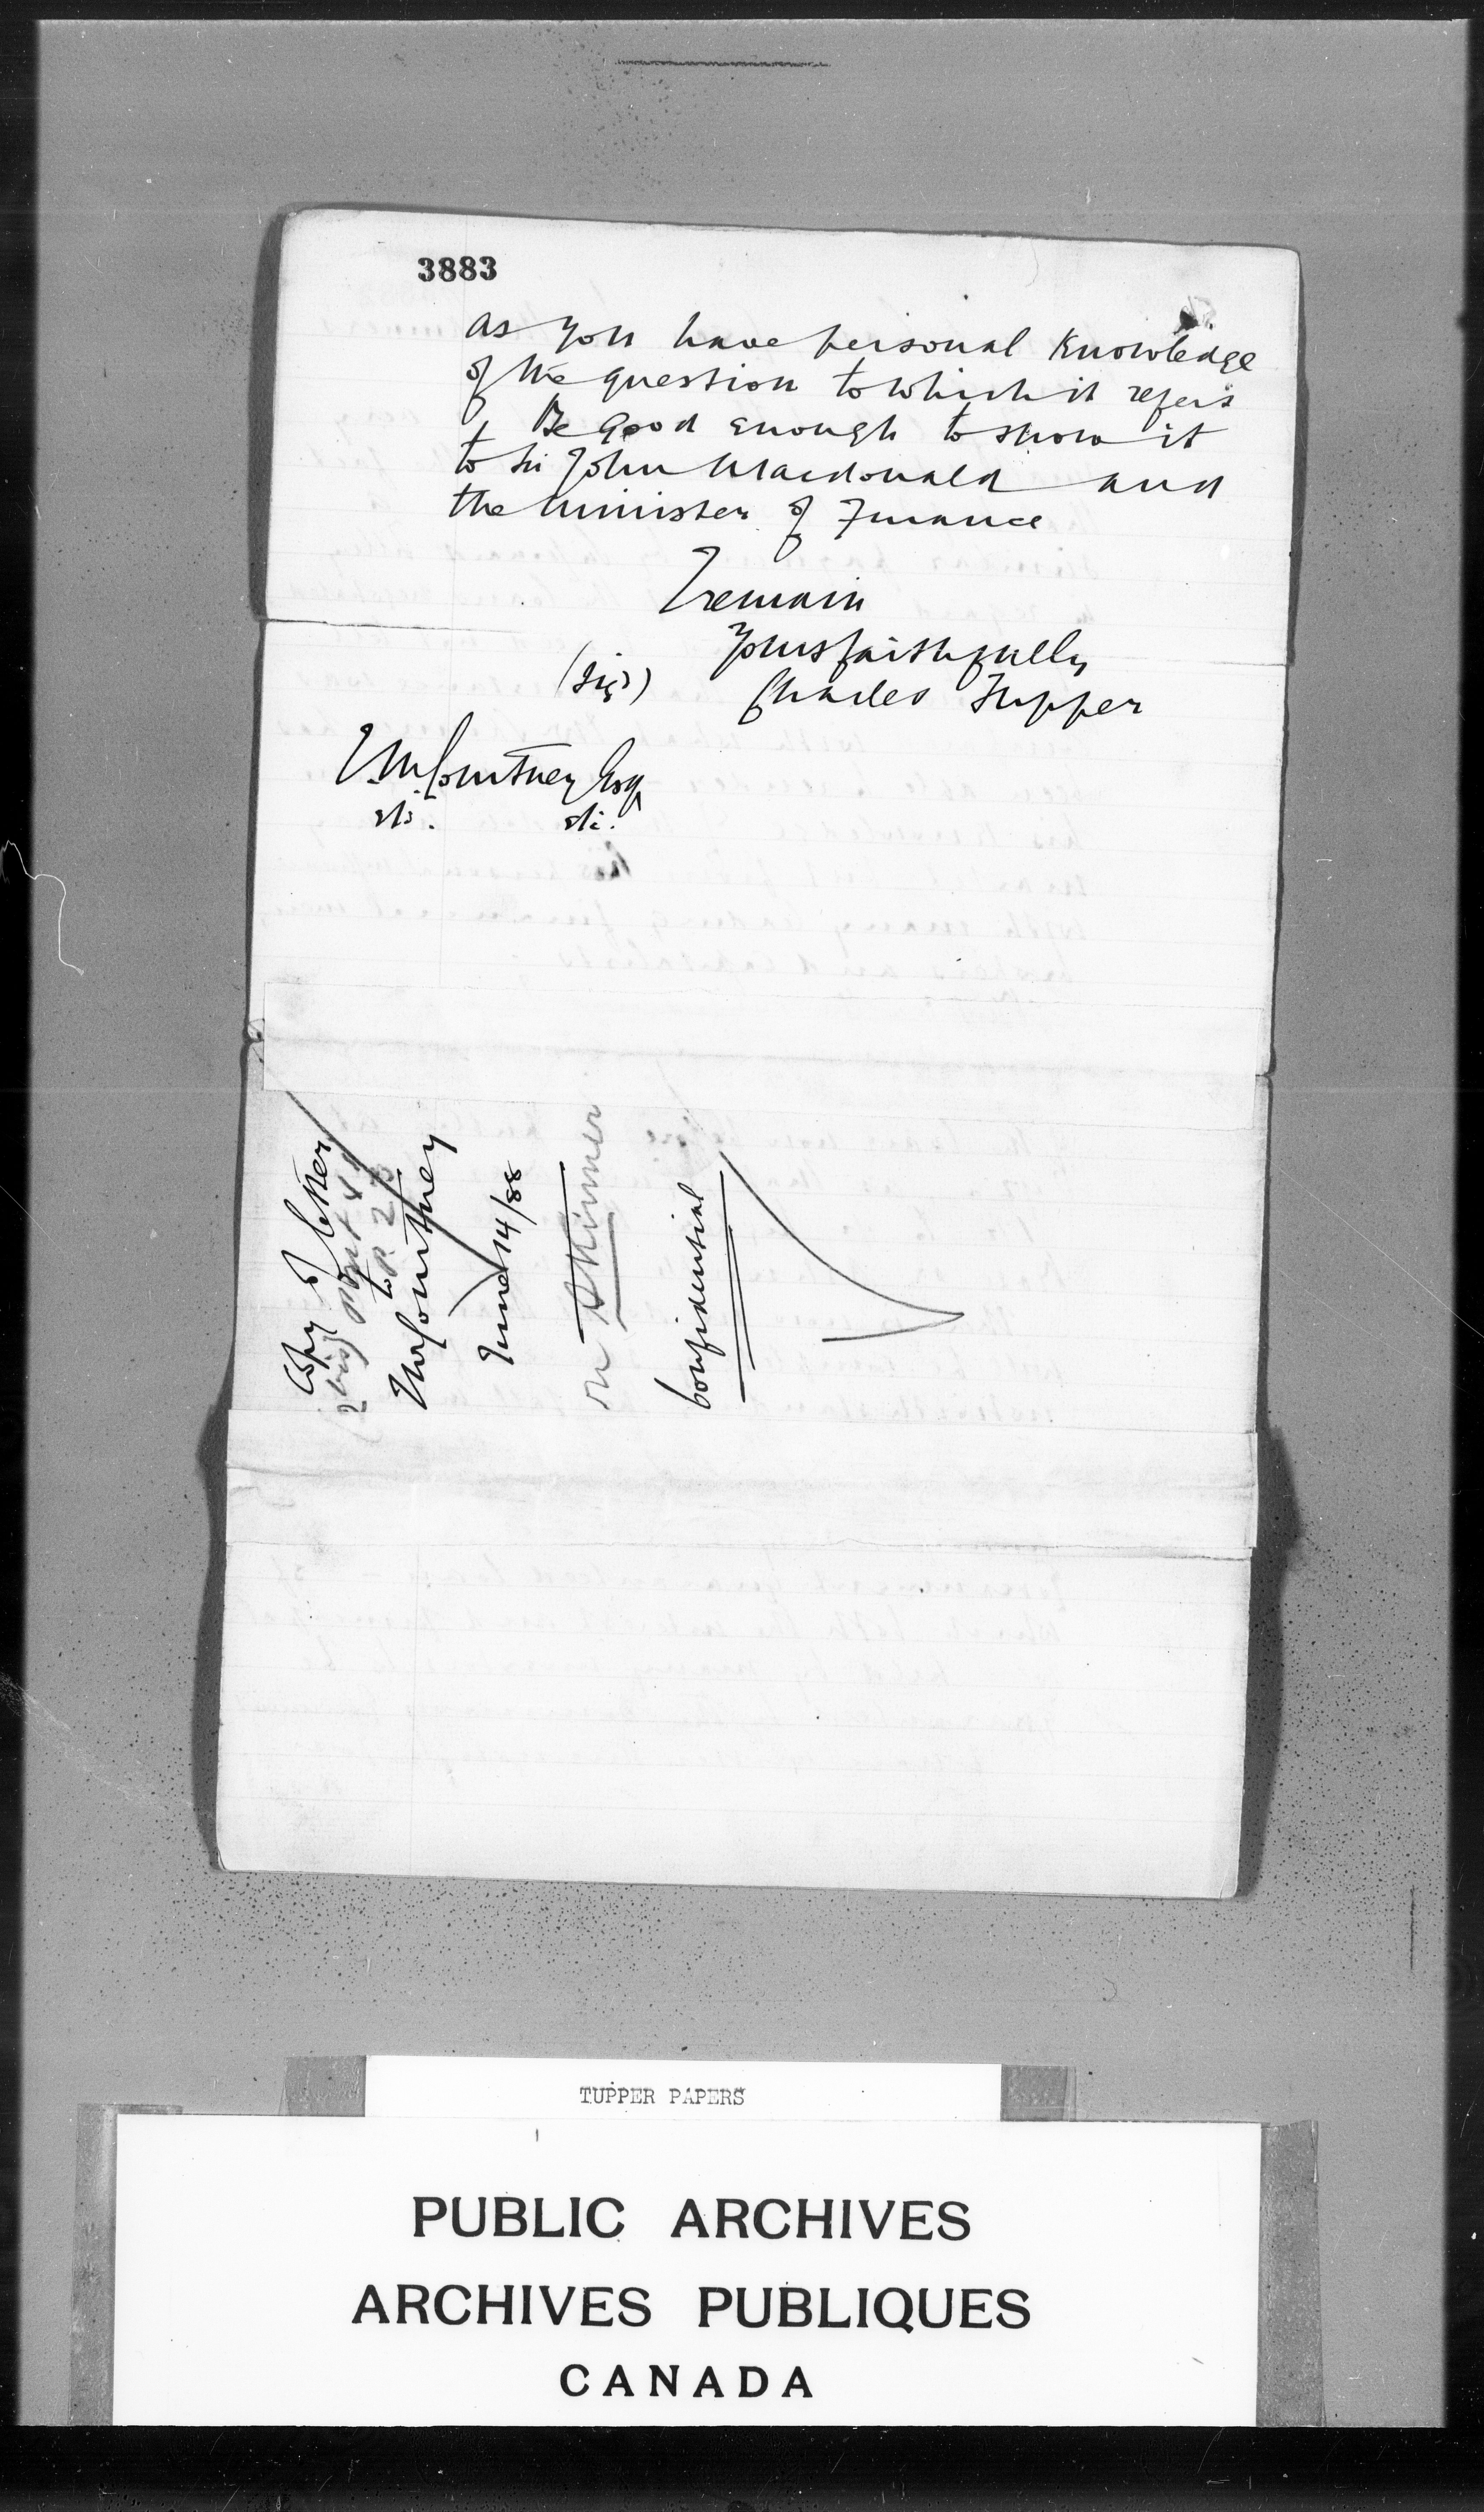 3883
as you have personal knowledge
of the question to which it refers
Be good enough to show it
to Sir John Macdonald and
the Minister of Finance
I remain
Yours faithfully
(Sigd) Charles Tupper
J.M. Courtney Esq
etc. etc.
Copy of letter
to
Mr Courtney
June 14/88
Skinner
Confidential
TUPPER PAPERS
PUBLIC ARCHIVES
ARCHIVES PUBLIQUES
CANADA